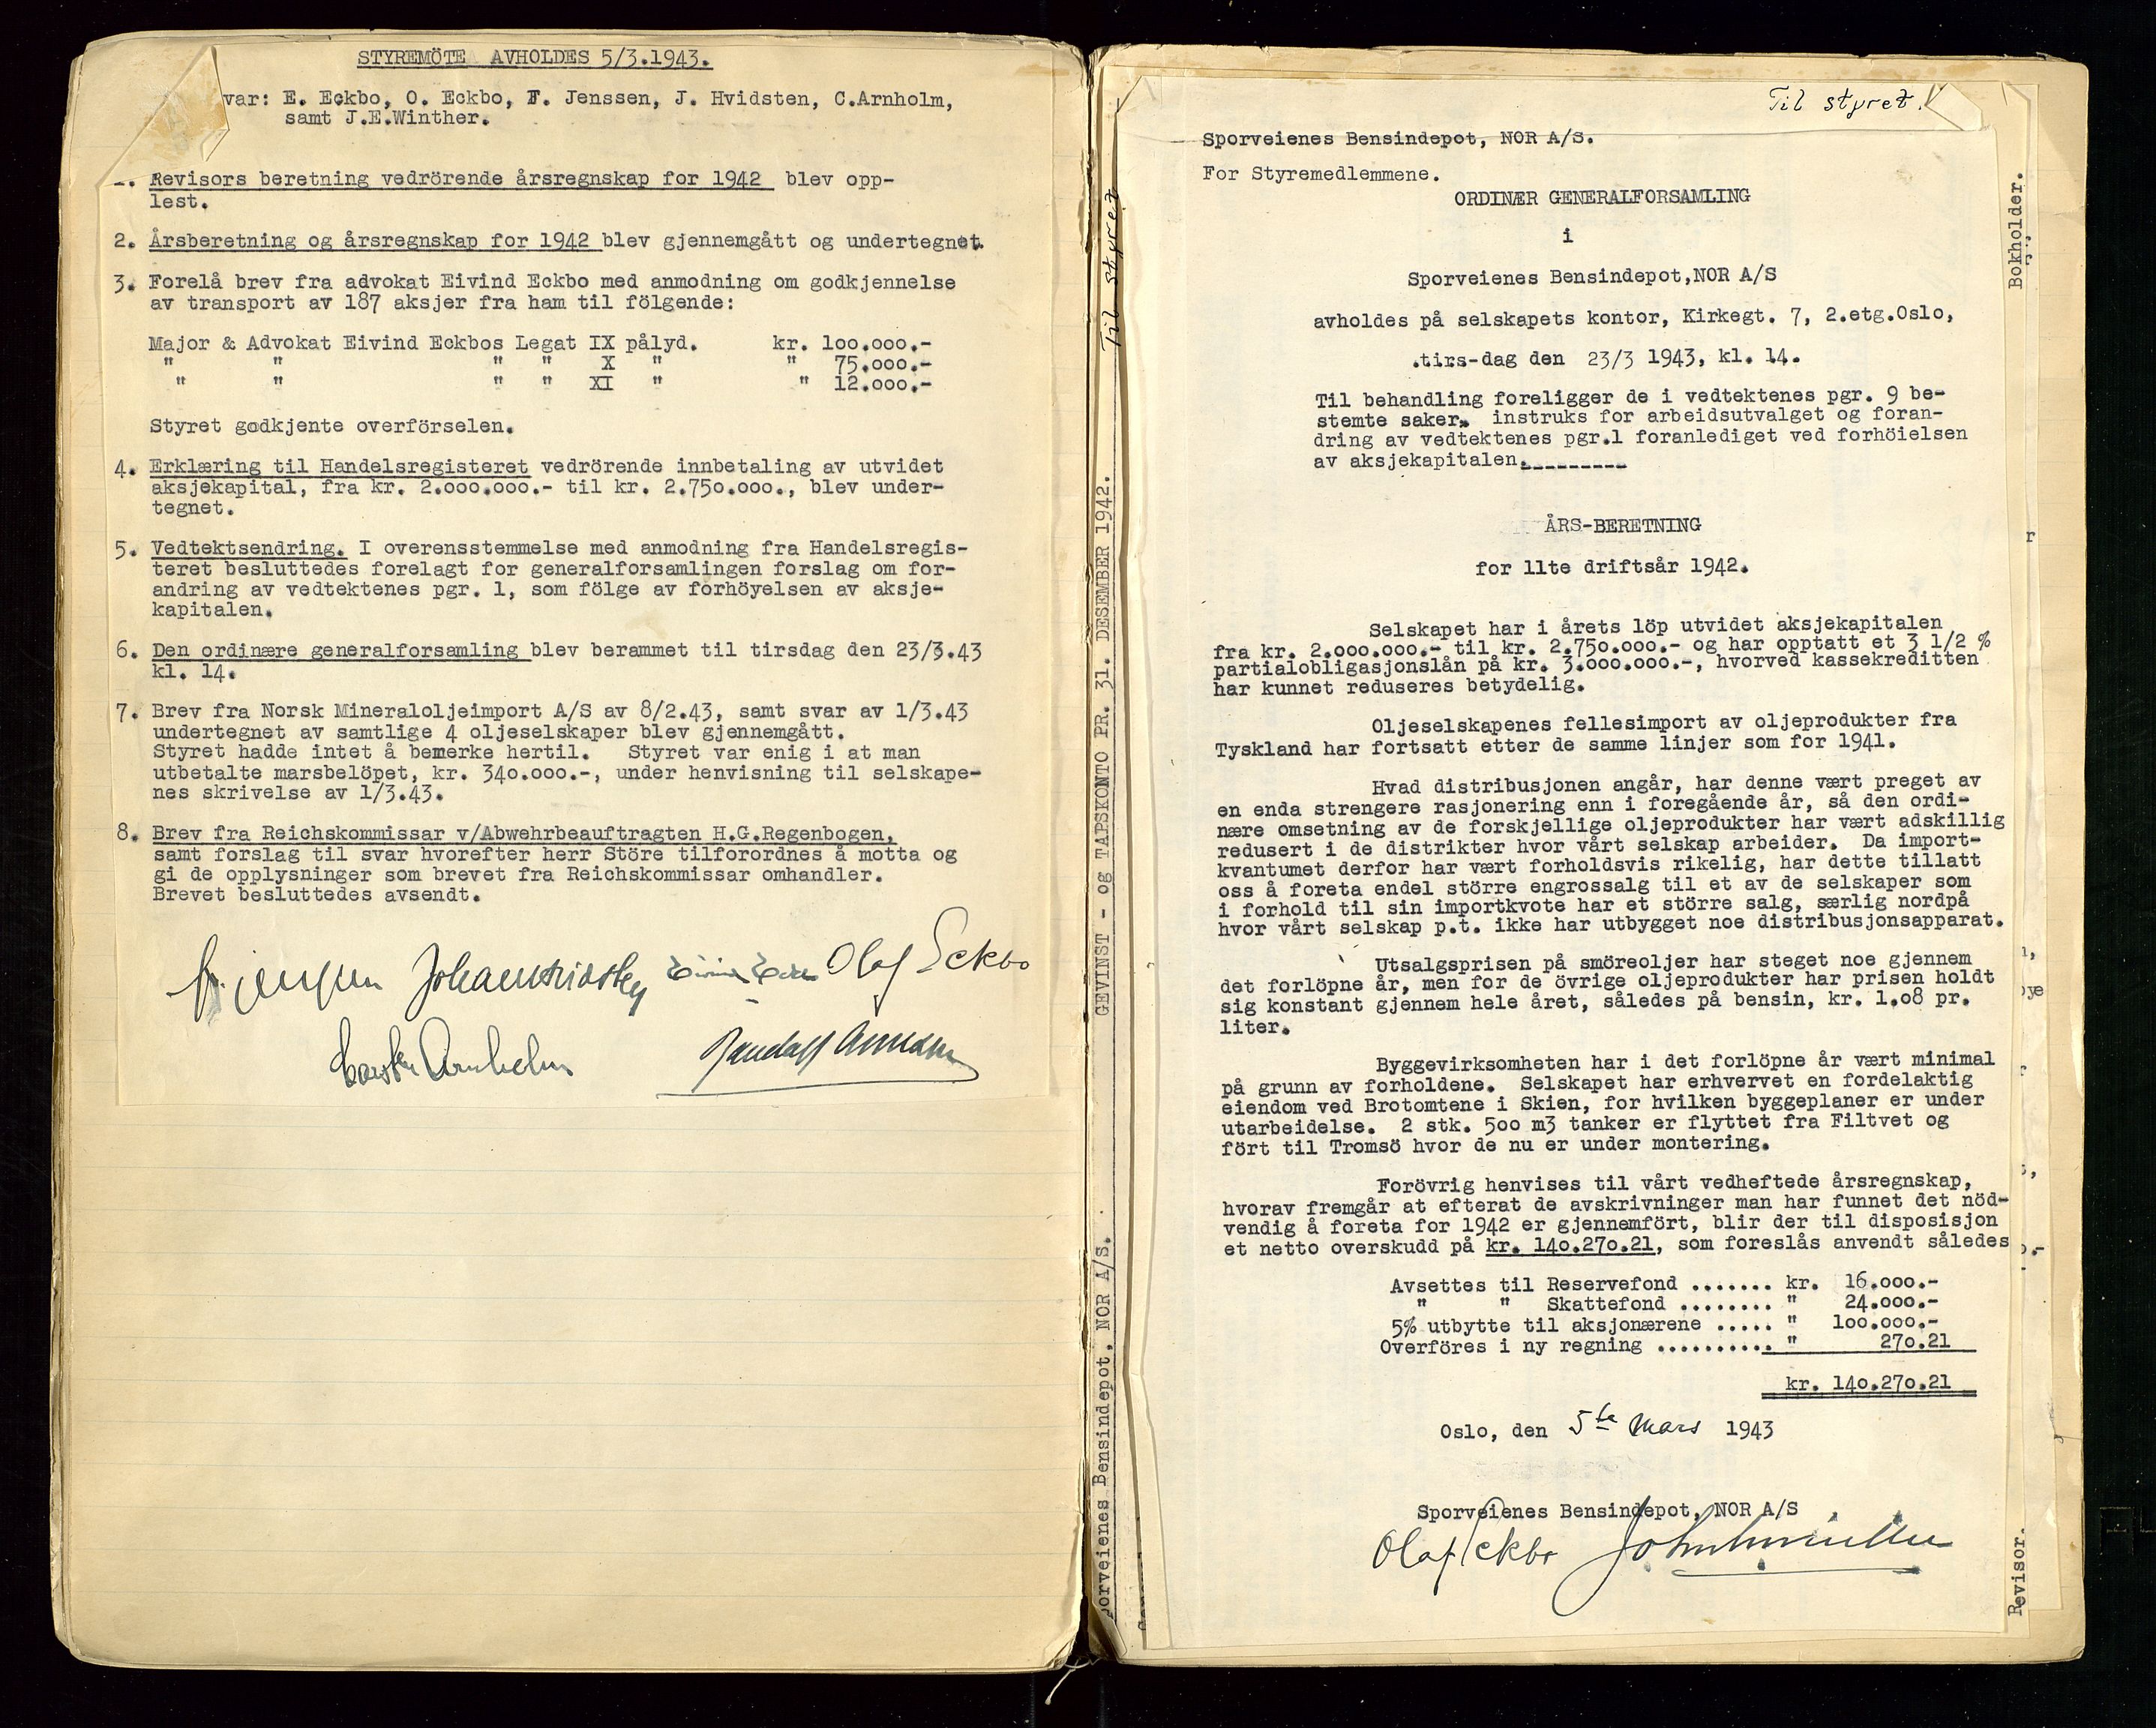 STYREMÖTE AVHOLDES 5/3.1943.
var: E. Eckbo, O. Eckbo, F. Jenssen, J. Hvidsten, C.Arnholm,
samt J.E.Winther.
1. Revisors beretning vedrörende årsregnskap for 1942 blev opp-
lest.
2. Årsberetning og årsregnskap for 1942 blev gjennemgått og undertegnet.
3. Forelå brev fra advokat Eivind Eckbo med anmodning om godkjennelse
av transport av 187 aksjer fra ham til fölgende:
Major & Advokat Eivind Eckbos Legat IX pålyd. kr. 100.000.-
" " " " X " " 75.000.-
" " " " XI " " 12.000.-
Styret godkjente overförselen.
4. Erklæring til Handelsregisteret vedrörende innbetaling av utvidet
aksjekapital, fra kr. 2.000.000.- til kr. 2.750.000., blev under-
tegnet.
5. Vedtektsendring. I overensstemmelse med anmodning fra Handelsregis-
teret besluttedes forelagt for generalforsamlingen forslag om for-
andring av vedtektenes pgr. 1, som fölge av forhöyelsen av aksje-
kapitalen.
6. Den ordinære generalforsamling blev berammet til tirsdag den 23/3.43
kl. 14.
7. Brev fra Norsk Mineraloljeimport A/S av 8/2.43, samt svar av 1/3.43
undertegnet av samtlige 4 oljeselskaper blev gjennemgått.
Styret hadde intet å bemerke hertil. Styret var enig i at man
utbetalte marsbelöpet, kr. 340.000.-, under henvisning til selskape-
nes skrivelse av 1/3.43.
8. Brev fra Reichskommissar v/Abwehrbeauftragten H.G.Regenbogen,
samt forslag til svar hvorefter herr Störe tilforordnes å motta og
gi de opplysninger som brevet fra Reichskommissar omhandler.
Brevet besluttedes avsendt.
Fr. Jenssen Johan Hvidsten Eivind Eckbo Olaf Eckbo
Carsten Arnholm
Sporveienes Bensindepot, NOR A/S. GEVINST - og TAPSKONTO PR. 31. DESEMBER 1942. Til styret
Til styret.
Sporveienes Bensindepot, NOR A/S.
For Styremedlemmene.
ORDINÆR GENERALFORSAMLING
i
Sporveienes Bensindepot,NOR A/S
avholdes på selskapets kontor, Kirkegt. 7, 2.etg.Oslo,
.tirs-dag den 23/3 1943, kl. 14.
Til behandling foreligger de i vedtektenes pgr. 9 be-
stemte saker. instruks for arbeidsutvalget og foran-
dring av vedtektenes pgr.1 foranlediget ved forhöielsen
av aksjekapitalen.---------
ÅRS-BERETNING
for 11te driftsår 1942.
Selskapet har i årets löp utvidet aksjekapitalen
fra kr. 2.000.000.- til kr. 2.750.000.- og har opptatt et 3 1/2 %
partialobligasjonslån på kr. 3.000.000.-, hvorved kassekreditten
har kunnet reduseres betydelig.
Oljeselskapenes fellesimport av oljeprodukter fra
Tyskland har fortsatt etter de samme linjer som for 1941.
Hvad distribusjonen angår, har denne vært preget av
en enda strengere rasjonering enn i foregående år, så den ordi-
nære omsetning av de forskjellige oljeprodukter har vært adskillig
redusert i de distrikter hvor vårt selskap arbeider. Da import-
kvantumet derfor har vært forholdsvis rikelig, har dette tillatt
oss å foreta endel större engrossalg til et av de selskaper som
i forhold til sin importkvote har et större salg, særlig nordpå
hvor vårt selskap p.t. ikke har utbygget noe distribusjonsapparat.
Utsalgsprisen på smöreoljer har steget noe gjennem
det forlöpne år, men for de övrige oljeprodukter har prisen holdt
sig konstant gjennem hele året, således på bensin, kr. 1.08 pr.
liter.
Byggevirksomheten har i det forlöpne år vært minimal
på grunn av forholdene. Selskapet har erhvervet en fordelaktig
eiendom ved Brotomtene i Skien, for hvilken byggeplaner er under
utarbeidelse. 2 stk. 500 m3 tanker er flyttet fra Filtvet og
fört til Tromsö hvor de nu er under montering.
Forövrig henvises til vårt vedheftede årsregnskap,
hvorav fremgår at efterat de avskrivninger man har funnet det nöd-
vendig å foreta for 1942 er gjennemfört, blir der til disposisjon
et netto overskudd på kr. 140.270.21, som foreslås anvendt således
Avsettes til Reservefond ....... kr. 16.000.-
" " Skattefond ........ " 24.000.-
5% utbytte til aksjonærene ..... " 100.000.-
Overföres i ny regning .......... " 270.21
kr. 140.270.21
Oslo, den 5te Mars 1943
Sporveienes Bensindepot, NOR A/S
Olaf Eckbo
Bokholder.
Revisor.